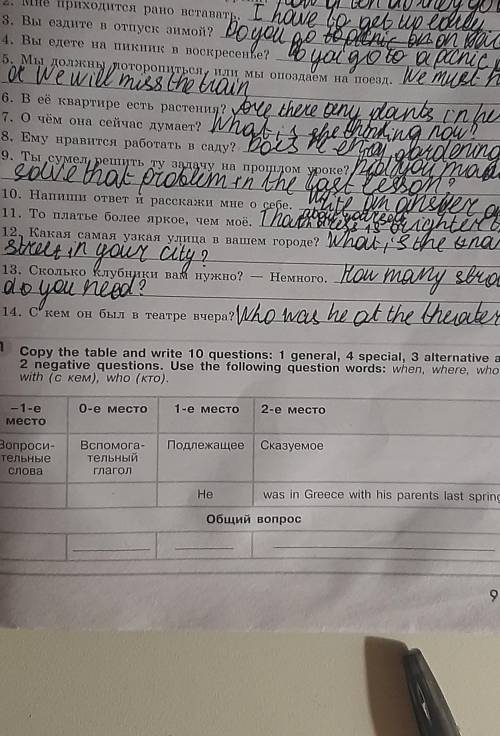 2. Мне приходится рано вставать. I have to get up early
3. Вы ездите в отпуск зимой? Do you go
4. Вы едете на пикник в воскресенье? Do you go to a picnic
5. Мы должны поторопиться, или мы опоздаем на поезд. We must
or We will miss the train
6. В её квартире есть растения? Are there any plants in he
7. О чём она сейчас думает? What is she thinking now?
8. Ему нравится работать в саду? Does he enjoy gardening
9. Ты сумел решить ту задачу на прошлом уроке? Did you
solve that problem in the last lesson?
10. Напиши ответ и расскажи мне о себе. Write an answer
about yourself
11. То платье более яркое, чем моё. That dress is brighter
12. Какая самая узкая улица в вашем городе? What is the
street in your city?
13. Сколько клубники вам нужно? — Немного. How many
do you need?
14. С кем он был в театре вчера? Who was he at the theater
Copy the table and write 10 questions: 1 general, 4 special, 3 alternative a
2 negative questions. Use the following question words: when, where, who
with (с кем), who (кто).
–1-е место 0-е место 1-е место 2-е место
Вопросительные слова Вспомогательный глагол Подлежащее Сказуемое
He was in Greece with his parents last spring
Общий вопрос
9